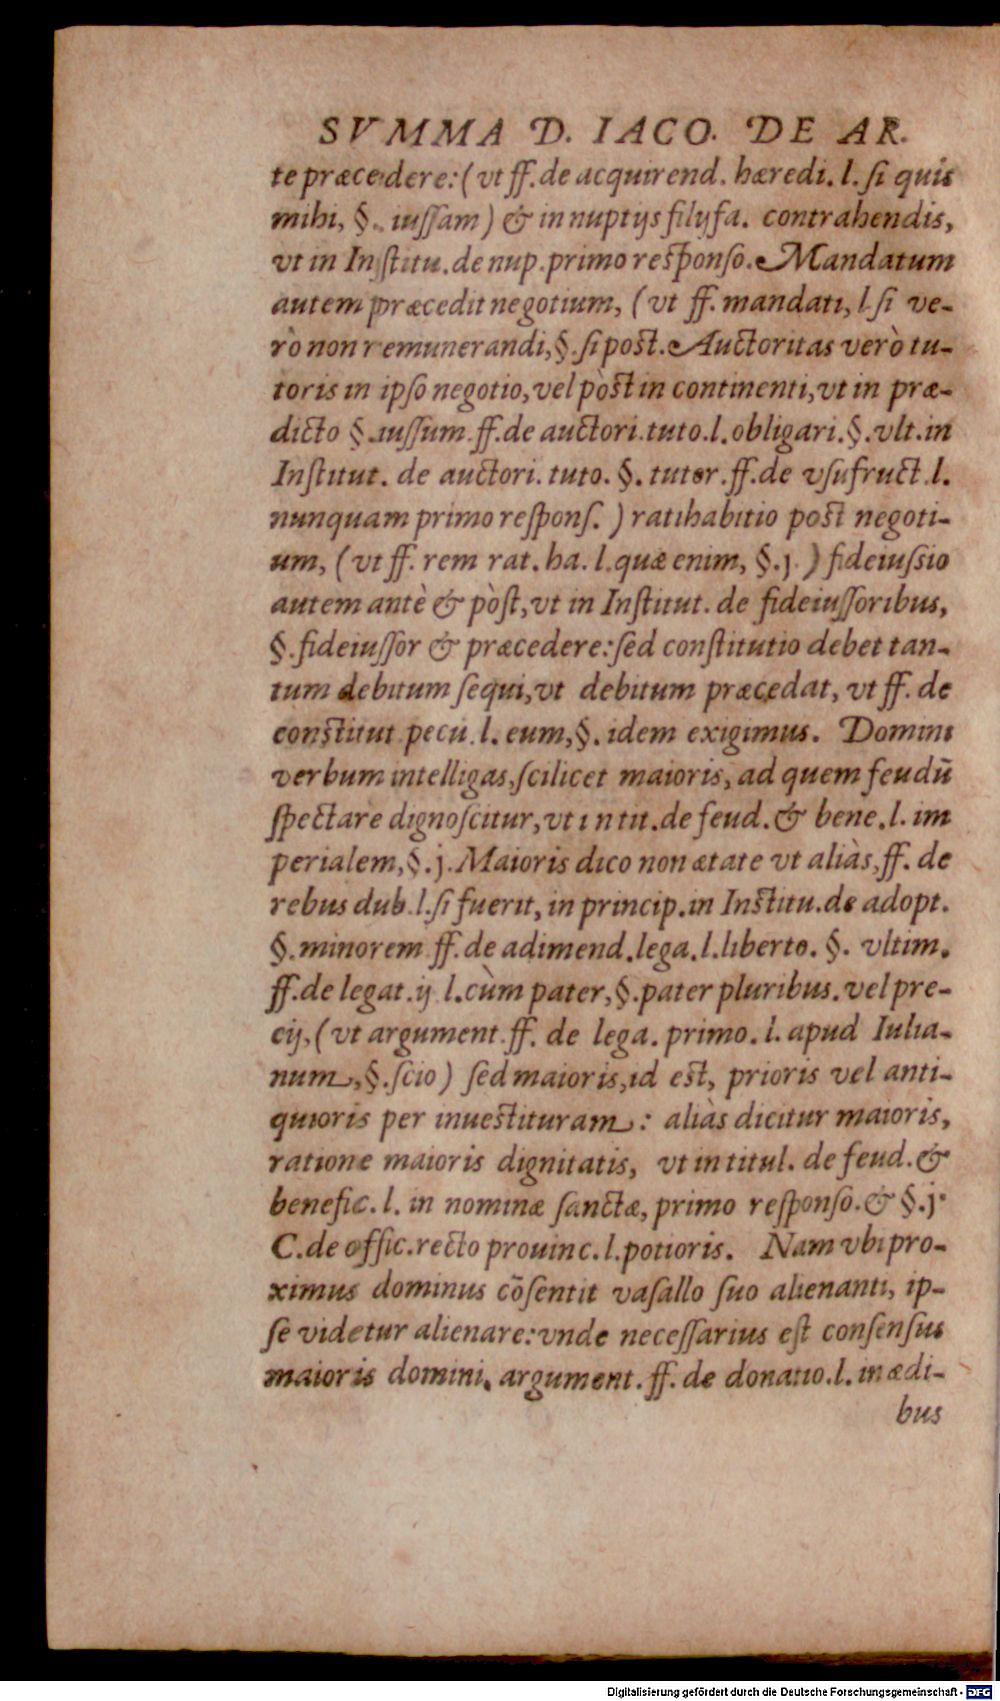 SVMMA D. IACO. DE AR.
te præcedere: ( vt ff. de acquirend. hæredi. l. ſi quis
mihi, §. iuſſam ) & in nuptijs filijfa. contrahendis,
vt in Inſtitu. de nup. primo reſponſo. Mandatum
autem præcedit negotium, ( vt ff. mandati, l. ſi ve-
rò non remunerandi, §. ſi poſt. Auctoritas verò tu-
toris in ipſo negotio, vel pòſt in continenti, vt in præ-
dicto §. iuſſum. ff. de auctori. tuto. l. obligari. §. vlt. in
Inſtitut. de auctori. tuto. §. tutor. ff. de vſufruct. l.
nunquam primo reſponſ. ) ratihabitio poſt negoti-
um, ( vt ff. rem rat. ha. l. quæ enim, §. j. ) fideiuſsio
autem antè & pòſt, vt in Inſtitut. de fideiuſſoribus,
§. fideiuſſor & præcedere: ſed conſtitutio debet tan-
tum debitum ſequi, vt debitum præcedat, vt ff. de
conſtitut. pecu. l. eum, §. idem exigimus. Domini
verbum intelligas, ſcilicet maioris, ad quem feudū
ſpectare dignoſcitur, vt in tit. de feud. & bene. l. im
perialem, §. j. Maioris dico non ætate vt aliàs, ff. de
rebus dub. l. ſi fuerit, in princip. in Inſtitu. de adopt.
§. minorem ff. de adimend. lega. l. liberto. §. vltim.
ff. de legat. ij l. cùm pater, §. pater pluribus. vel pre-
cij, ( vt argument. ff. de lega. primo. l. apud Iulia-
num, §. ſcio ) ſed maioris, id eſt, prioris vel anti-
quioris per inueſtituram : aliàs dicitur maioris,
ratione maioris dignitatis, vt in titul. de feud. &
benefic. l. in nominæ ſanctæ, primo reſponſo. & §. j.
C. de offic. recto prouinc. l. potioris. Nam vbi pro-
ximus dominus cōſentit vaſallo ſuo alienanti, ip-
ſe videtur alienare: vnde neceſſarius eſt conſenſus
maioris domini, argument. ff. de donatio. l. in ædi-
bus
Digitalisierung gefördert durch die Deutsche Forschungsgemeinschaft - DFG